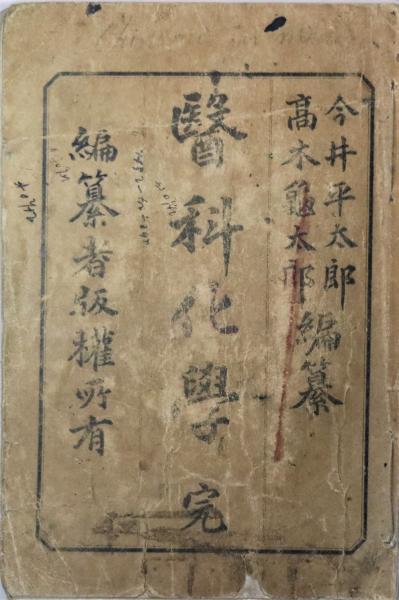 今井平太郎
高木龜太郎
編纂
醫科化學 完
編纂者版權所有